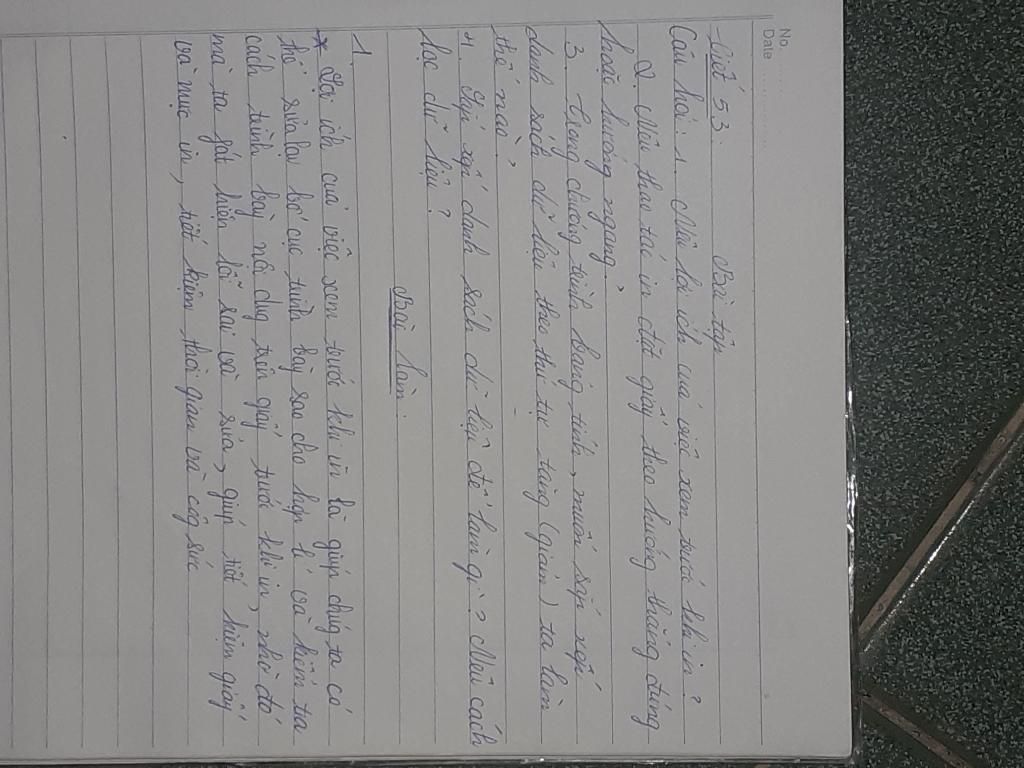 No.
Date
Tiết 53: Bài tập
Câu hỏi: 1. Nêu lợi ích của việc xem trước khi in?
2. Nêu thao tác in đặt giấy theo hướng thẳng đứng
hoặc hướng ngang?
3. Trong chương trình bảng tính, muốn sắp xếp
danh sách dữ liệu theo thứ tự tăng (giảm) ta làm
thế nào?
4. Sắp xếp danh sách dữ liệu để làm gì? Nêu cách
lọc dữ liệu?
Bài làm:
1.
* Lợi ích của việc xem trước khi in là giúp chúng ta có
thể sửa lại bố cục trình bày sao cho hợp lí và kiểm tra
cách trình bày nội dung trên giấy trước khi in, nhờ đó
mà ta phát hiện lỗi sai và sửa, giúp tiết kiệm giấy
và mực in, tiết kiệm thời gian và công sức